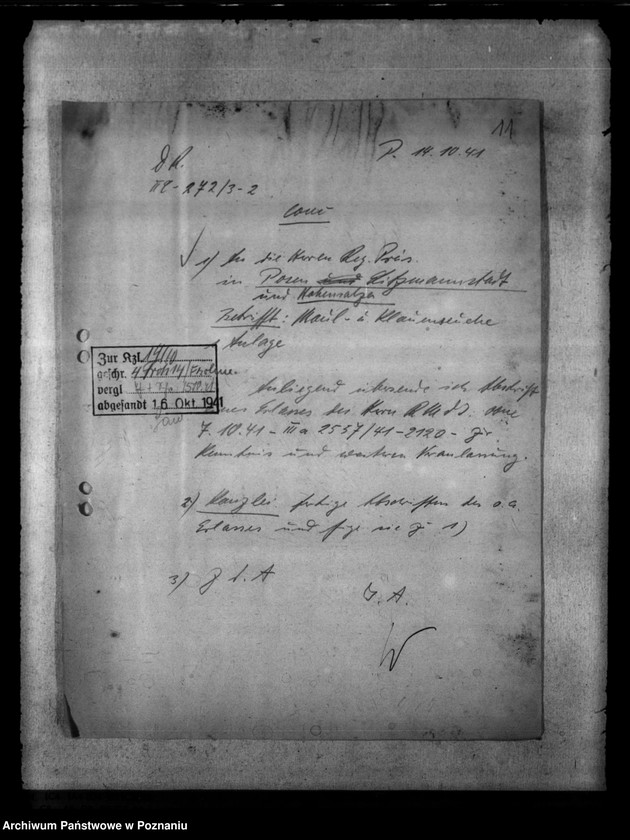 11
D.R. P. 14.10.41
II E - 272/3-2
1) An die Herren Reg. Präs.
in Posen und Litzmannstadt
und Hohensalza
Betrifft: Maul- u Klauenseuche
1 Anlage
Zur Kzl. 14/10
geschr.
vergl
abgesandt 16. Okt. 1941
Anliegend übersende ich Abschrift
eines Erlasses des Herrn R.M.d.I. vom
7.10.41 - III a 2557/41-2120 - zur
Kenntnis und weiteren Veranlassung.
2) Kanzlei fertige Abschriften des o.a.
Erlasses und füge sie zu 1)
3) Z. d. A
I. A.
Archiwum Państwowe w Poznaniu